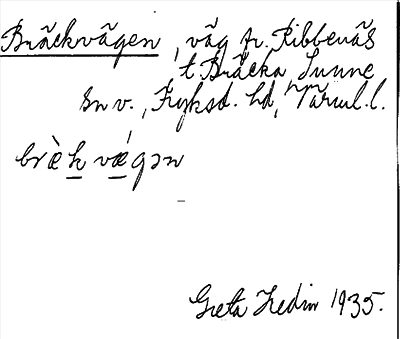 Bräckvägen, väg fr. Ribbenäs
t. Bräcka, Sunne
sn v., Fryksd. hd, Värml. l.
brὲk vǽgən
Greta Hedin 1935.